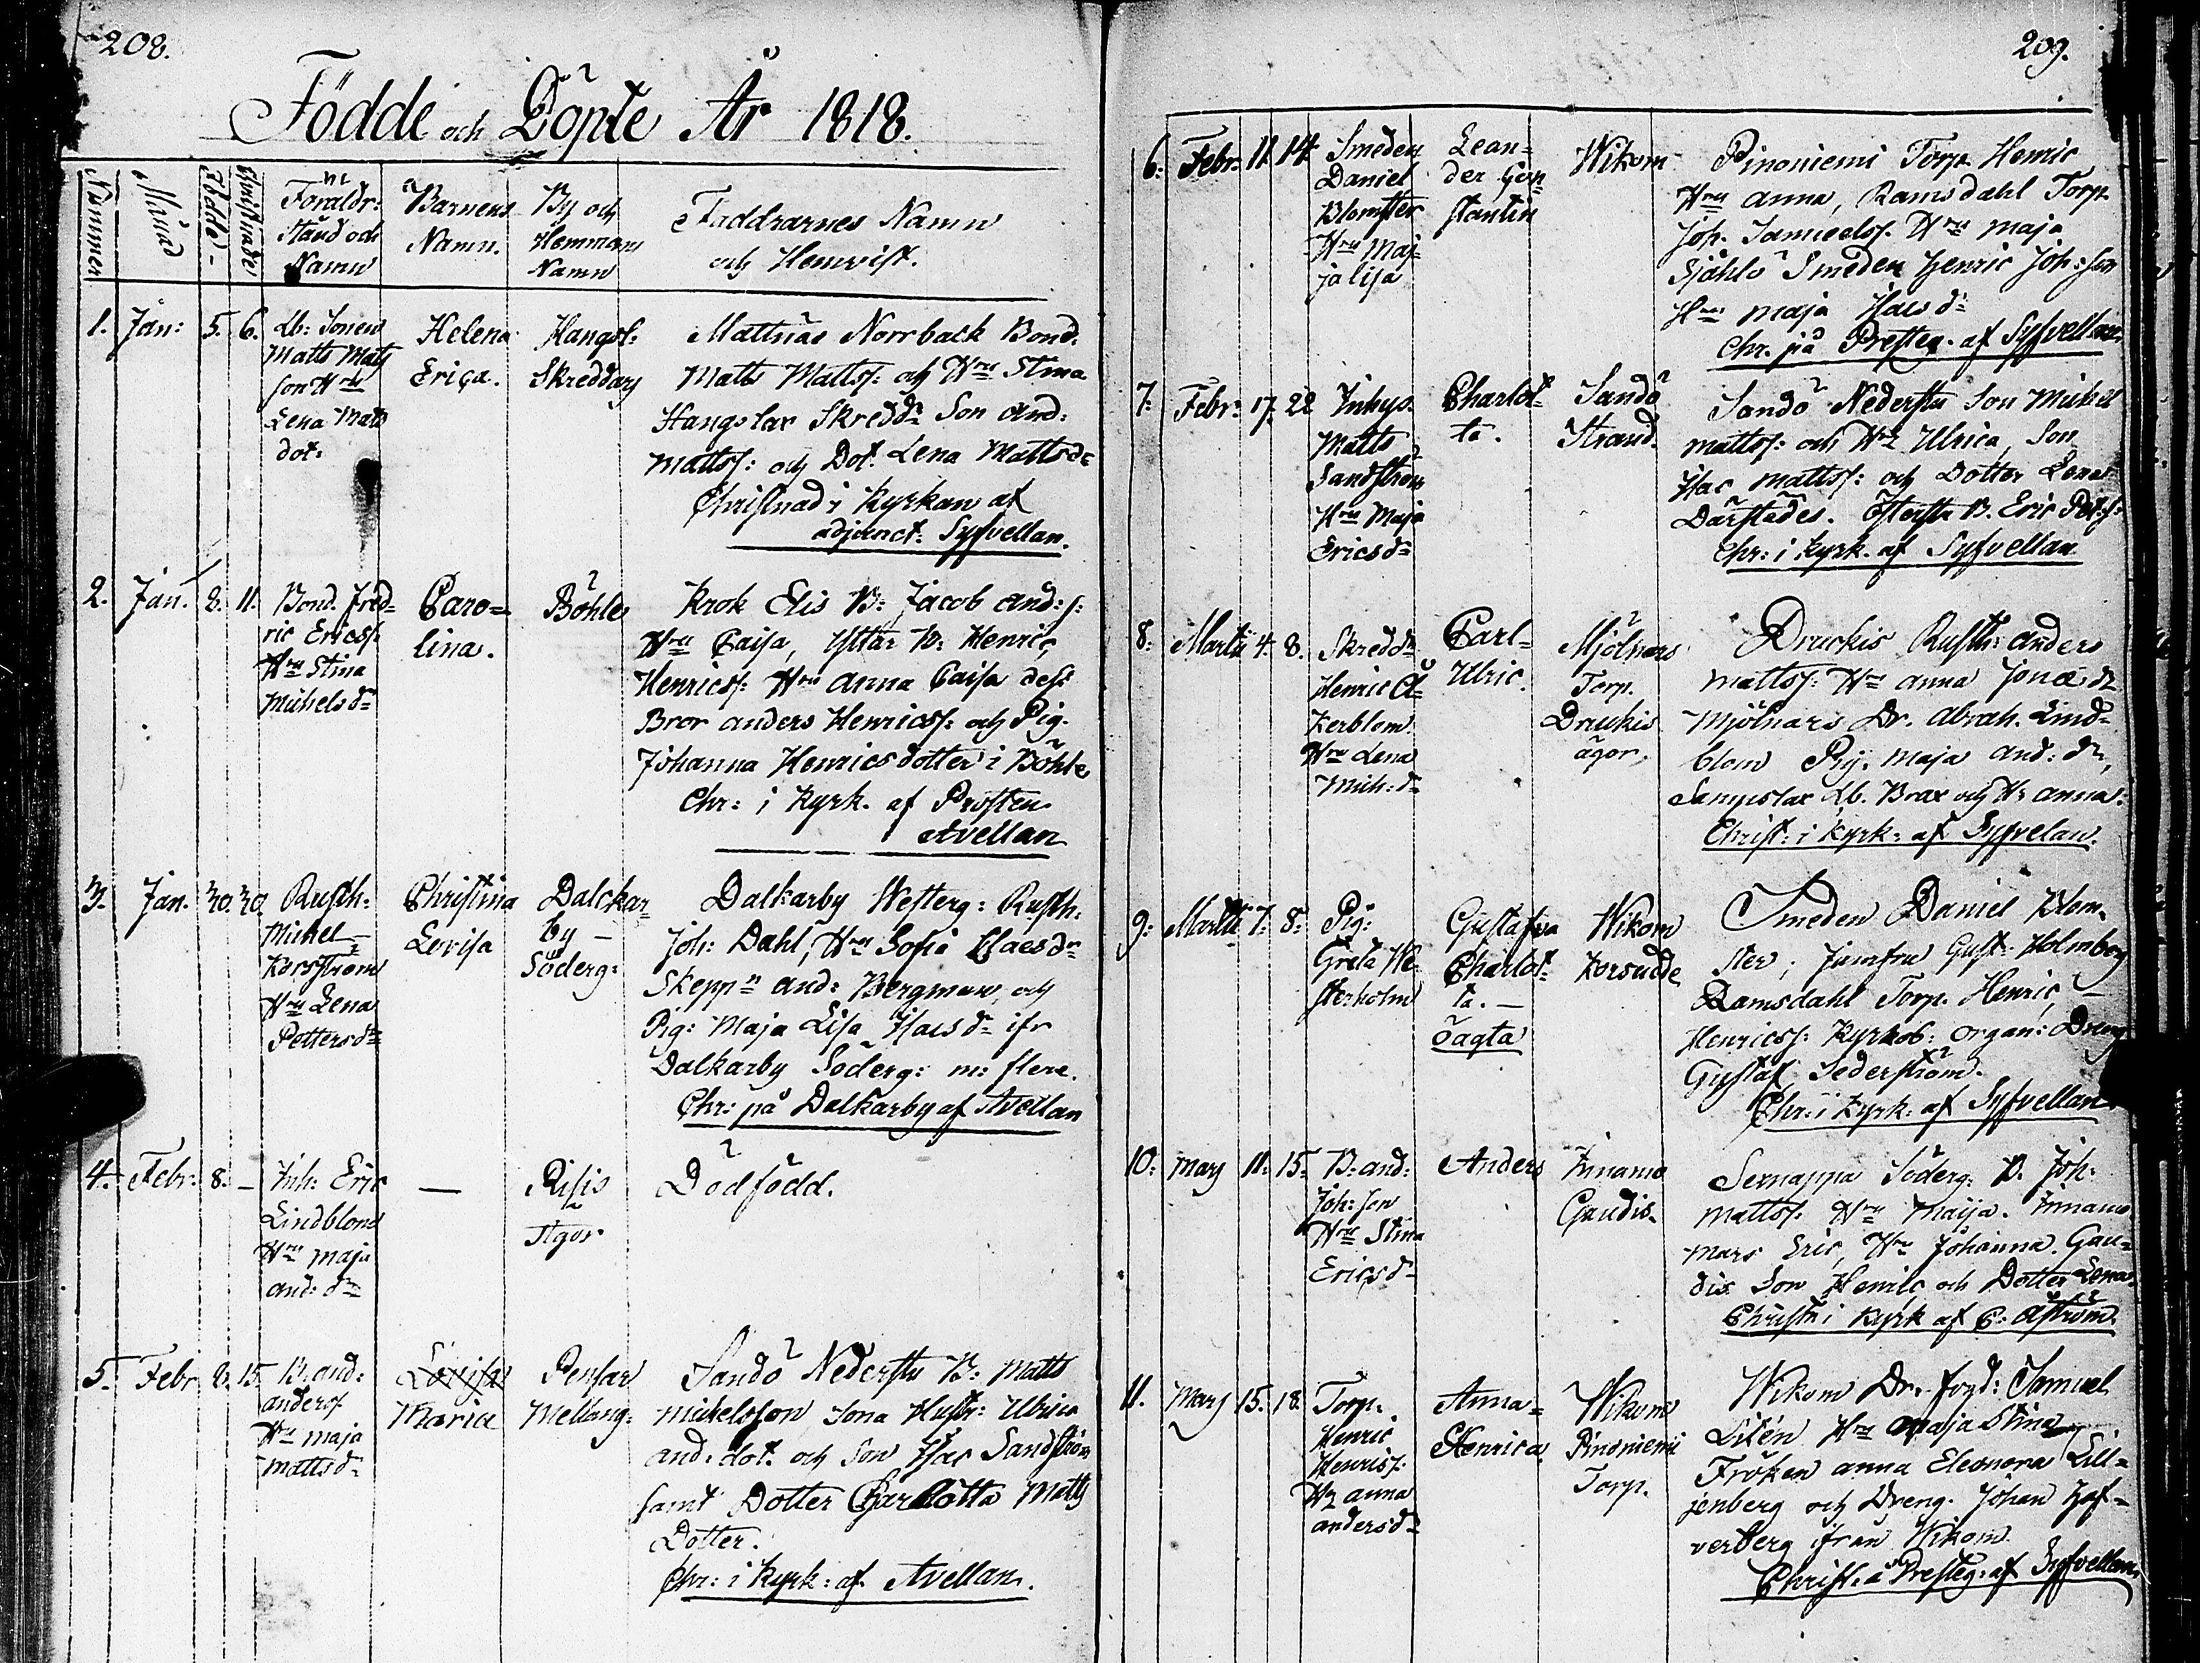 208.
Födde och Döpte År 1818.
Nummer
Månad
Födde
Christnade
Föräldr:
Stånd och
Namn
Barnens
Namn.
By och
Hemmans
Namn
Faddrarnes Namn
och Hemvist.
1. Jan: 5. 6.
Lb: Sonen
Matts Mats
son Hru
Lena Mats
dot:
Helena
Erica.
Hangsl:
Skreddars
Mattnäs Norrback Bond.
Matts Mattss: och Hru Stina
Hangslax Skredd: Son And:
Mattss: och Dot. Lena Mattsdr
Christnad i Kyrkan af
adjunct. Sylvellan.
2. Jan. 8. 11.
Bond. Fred-
ric Ericss.
Hru Stina
Michelsdr
Caro=
lina.
Böhle
Krok Elis B: Jacob And:s:
Hru Caisa, Yttär B: Henric
Henricss: Hru Anna Caisa dess
Bror Anders Henricss: och Pig.
Johanna Henricsdotter i Böhle
Chr: i Kyrk. af Prosten
Avellan
3. Jan. 30. 30.
Rusth:
Michel
Korsström
Hru Lena
Pettersdr
Christina
Lovisa
Dalckar-
by –
Söderg:
Dalkarby Westerg: Rusth:
Joh: Dahl, Hru Sofia Claesdr
Skepp: And: Bergman, och
Pig: Maja Lisa Isacsdr ifr
Dalkarby Söderg: m: flere.
Chr: på Dalkarby af Avellan
4. Febr: 8. –
Inh: Eric
Lindblom
Hru Maja
And: dr
—
Risis
Ägor
Dödfödd.
5. Febr 8. 15.
B: And:
Anderss
Hru Maja
Mattsdr
Lovisa
Maria
Pensar
Mellang:
Sandö Nedersta B: Matts
Michelsson, Sona Hustr: Ulrica
And: dot. och Son Isac Sandström
samt Dotter Charlotta Matts
Dotter.
Chr: i Kyrk: af Avellan.
209.
6: Febr: 11. 14
Smeden
Daniel
Blomster
Hru Maj-
ja Lisa
Lean=
der Con
stantin
Wikom
Pinoniemi Torp. Henric
Hru Anna, Ramsdahl Torp.
Joh. Samuelss. Hru Maja
Sjöhlö Smeden Henric Joh:son
Hru Maja Isacsdr
Chr. på Presteg. af Sylvellan.
7: Febr: 17. 22
Inhys.
Matts
Sandström
Hru Maja
Ericsdr
Charlot-
ta.
Sandö
Strand.
Sandö Nedersta Son Michel
Mattss: och Hr Ulrica, Son
Isac Mattss: och Dotter Lena
Därstädes. Öfversta B. Eric Pet:s:
Chr: i Kyrk. af Sylvellan
8: Martii 4. 8.
Skreddr
Henric Å-
kerblom
Hru Lena
Mich: dr
Carl-
Ulric.
Mjölnars
Torp.
Druckis
ägor,
Druckis Rusth: Anders
Mattss: Hru Anna Jonædr
Mjölnars Dr. Abrah. Lind-
blom Pig. Maja And: dr,
Sampslax Lb. Brax och Hr Anna.
Christ: i Kyrk: af Sylvelan.
9: Martii 7. 8.
Pig:
Greta We-
sterholm
Gustafva
Charlot-
ta. –
oägta
Wikom
Korsudde
Smeden Daniel Blom-
ster, Jumfru Gust: Holmberg
Ramsdahl Torp. Henric
Henricss: Kyrkob: Organ: Dreng
Gustaf Sederström.
Chr: i Kyrk: af Sylvellan
10: Marj 11. 15.
B: And:
Joh: son
Hru Stina
Ericsdr
Anders
Innamo
Gaudis.
Sernappa Söderg: B. Joh:
Mattss: Hru Maija. Innamo
Mars Eric, Hru Johanna. Gau-
dis Son Henric och Dotter Lena
Christn i Kyrk af C: Åström
11. Marj 15. 18.
Torp.
Henric
Henriss:
Hr Anna
Andersdr
Anna-
Henrica
Wikom
Pinoniemi
Torp.
Wikom Dr. fogd: Samuel
Litén Hru Maja Stina
Fröken Anna Eleonora Lill-
jenberg och Dreng. Johan Haf-
verberg ifrån Wikom.
Christ: å Presteg: af Sylvellan